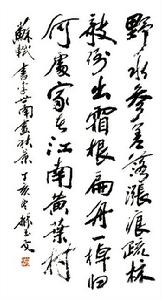 野水參差落漲痕疏林
敧倒出霜根扁舟一棹归
何處家在江南黄葉村
蘇軾書李世南畫秋景丁亥